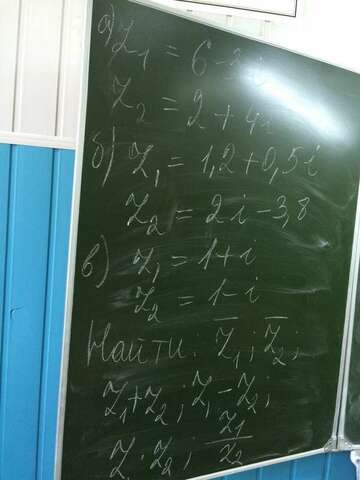 а) z₁ = 6 - 3i
z₂ = 2 + 4i
б) z₁ = 1,2 + 0,5i
z₂ = 2i - 3,8
в) z₁ = 1 + i
z₂ = 1 - i
Найти: z̅₁; z̅₂;
z₁ + z₂; z₁ - z₂;
z₁ · z₂; z₁/z₂